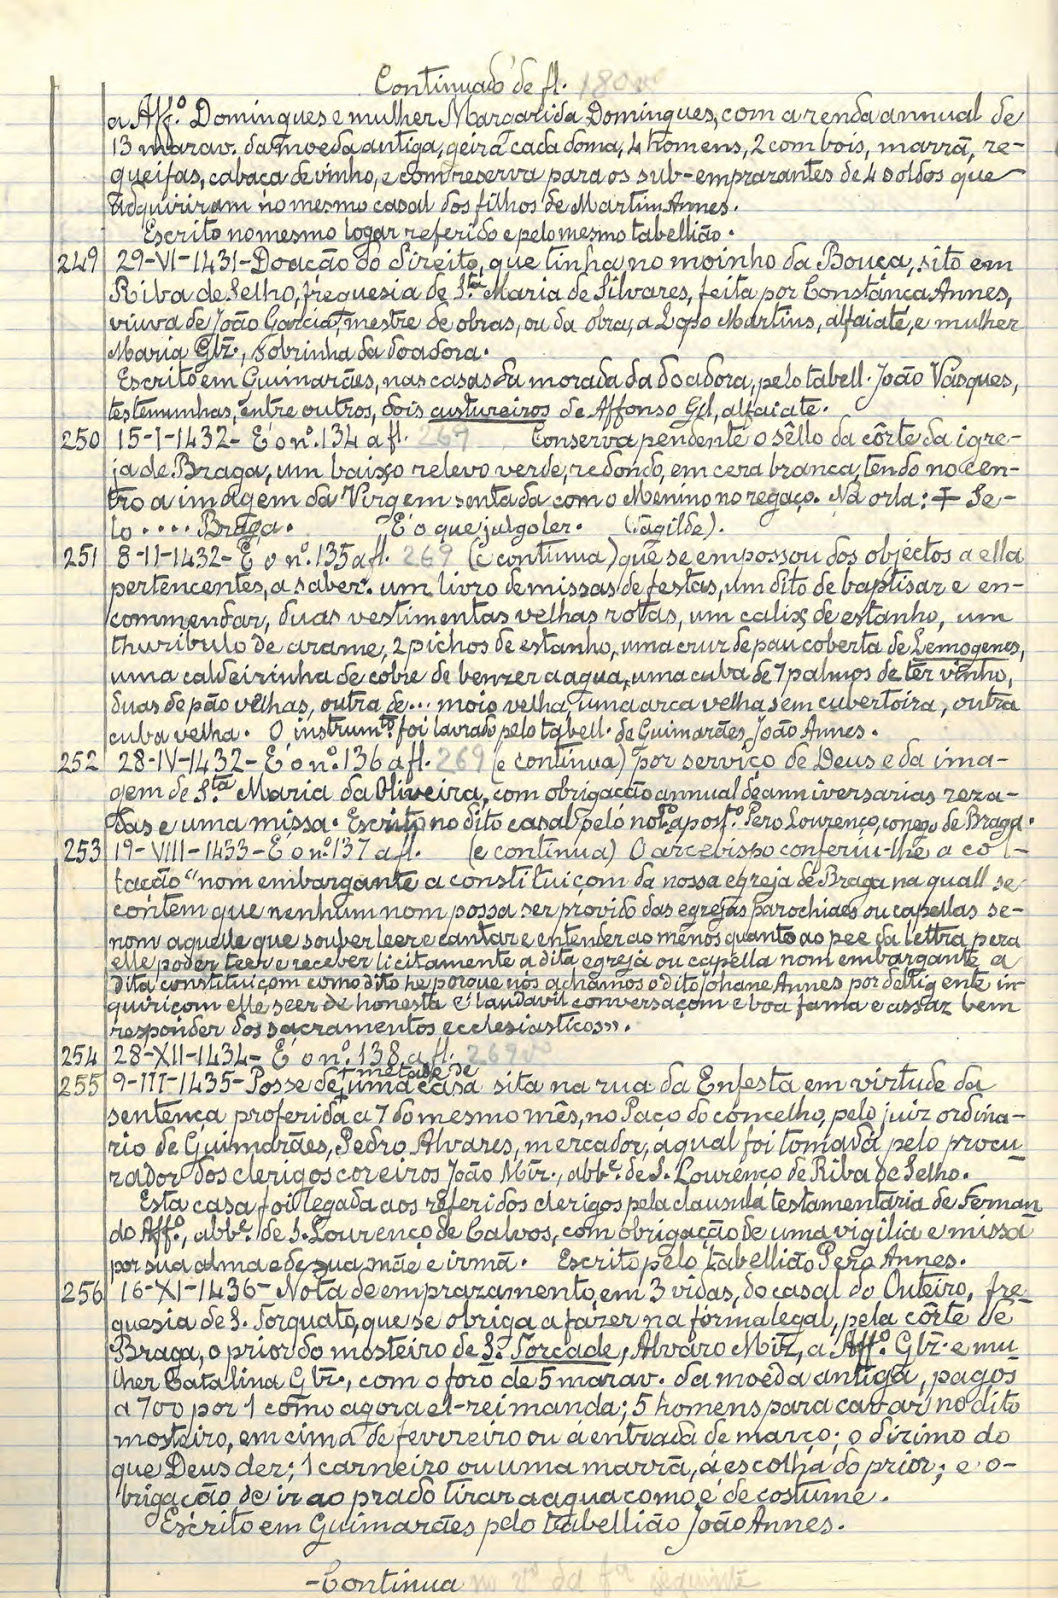 Continuado de fl. 180 vº
a Aff.º Domingues e mulher Margarida Domingues, com a renda annual de
13 marav. da moeda antiga, geira cada doma, 4 homens, 2 com bois, marrã, re-
queifas, cabaça de vinho, e com reserva para os sub-emprazantes de 4 soldos que
adquiriram no mesmo casal dos filhos de Martim Annes.
Escrito no mesmo logar referido e pelo mesmo tabellião.
249 29-VI-1431-Doação do direito, que tinha no moinho da Bouça, sito em
Riba de Selho, freguesia de S.ta Maria de Silvares, feita por Constança Annes,
viuva de João Garcia, mestre de obras, ou da obra, a Lopo Martins, alfaiate, e mulher
Maria Glz̃., sobrinha da doadora.
Escrito em Guimarães, nas casas da morada da doadora, pelo tabell. João Vasques,
testemunhas, entre outros, dois custureiros de Affonso Gil, alfaiate.
250 15-I-1432- É o n.º 134 a fl. 269 Conserva pendente o sêllo da côrte da igre-
ja de Braga, um baixo relevo verde, redondo, em cera branca, tendo no cen-
tro a imagem da Virgem sentada com o Menino no regaço. Na orla: + Se-
lo .... Braga. É o que julgo ler. (Tagilde).
251 8-II-1432- É o n.º 135 a fl. 269 (e continua) que se empossou dos objéctos a ella
pertencentes, a saber: um livro de missas de festas, um dito de baptisar e en-
commendar, duas vestimentas velhas rotas, um calix de estanho, um
thuribulo de arame, 2 pichos de estanho, uma cruz de pau coberta de Lemogenes,
uma caldeirinha de cobre de benzer a agua, uma cuba de 7 palmos de ter vinho,
duas de pão velhas, outra de... moio velha, uma arca velha sem cubertoira, outra
cuba velha. O instrumto. foi lavrado pelo tabell. de Guimarães, João Annes.
252 28-IV-1432- É o n.º 136 a fl. 269 (e continua) por serviço de Deus e da ima-
gem de S.ta Maria da Oliveira, com obrigação annual de anniversarias reza-
das e uma missa. Escrito no dito casal pelo not.º apost.º Pero Lourenço, conego de Braga.
253 19-VIII-1433- É o n.º 137 a fl. (e continua) O arcebispo conferiu-lhe a col-
tação "nom embargante a constituiçom da nossa egreja de Braga na quall se
contem que nenhum nom possa ser provido das egrejas parochiaes ou capellas se-
nom aquelle que souber leer e cantar e entender ao menos quanto ao pee da lettra pera
elle poder teer e receber licitamente a dita egreja ou capella nom embargante a
dita constituiçom como dito he porque nós achamos o dito Johane Annes por dellig ente in-
quiriçom elle seer de honesta e laudavil conversaçom e boa fama e assaz bem
responder dos sacramentos ecclesiasticos».
254 28-XII-1434- É o n.º 138 a fl. 269 vº
255 9-III-1435-Posse de + metade de uma casa sita na rua da Enfesta em virtude da
sentença proferida a 7 do mesmo mês, no Paço do concelho, pelo juiz ordina-
rio de Guimarães, Pedro Alvares, mercador, a qual foi tomada pelo procu-
rador dos clerigos coreiros João Mĩz., abb.e de S. Lourenço de Riba de Selho.
Esta casa foi legada aos referidos clerigos pela clausula testamentaria de Fernan
do Aff.º, abb.e de S. Lourenço de Calvos, com obrigação de uma vigilia e missa
por sua alma e de sua mãe e irmã. Escrito pelo tabellião Pero Annes.
256 16-XI-1436-Nota de emprazamento, em 3 vidas, do casal do Outeiro, fre-
guesia de S. Torquato, que se obriga a fazer na fórma legal, pela côrte de
Braga, o prior do mosteiro de S. Torcade, Alvaro Mĩz, a Aff.º Glz̃. e mu-
lher Catalina Glz̃., com o foro de 5 marav. da moeda antiga, pagos
a 700 por 1 como agora el-rei manda; 5 homens para cavar no dito
mosteiro, em cima de fevereiro ou á entrada de março; o dizimo do
que Deus der; 1 carneiro ou uma marrã, á escolha do prior; e o-
brigação de ir ao prado tirar a agua como é de costume.
Escrito em Guimarães pelo tabellião João Annes.
-Continua no vº da fª seguinte